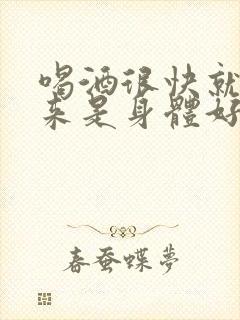 喝酒很快就
来是身體好
春蚕蝶夢